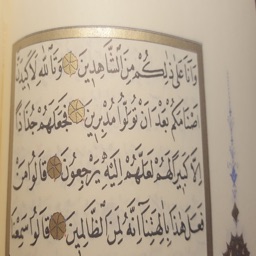 وَاَنَا عَلٰى ذٰلِكُمْ مِنَ الشَّاهِدٖينَ وَتَاللّٰهِ لَاَكٖيدَنَّ
اَصْنَامَكُمْ بَعْدَ اَنْ تُوَلُّوا مُدْبِرٖينَ فَجَعَلَهُمْ جُذَاذًا
اِلَّا كَبٖيرًا لَهُمْ لَعَلَّهُمْ اِلَيْهِ يَرْجِعُونَ قَالُوا مَنْ
فَعَلَ هٰذَا بِاٰلِهَتِنَٓا اِنَّهُ لَمِنَ الظَّالِمٖينَ قَالُوا سَمِعْنَا